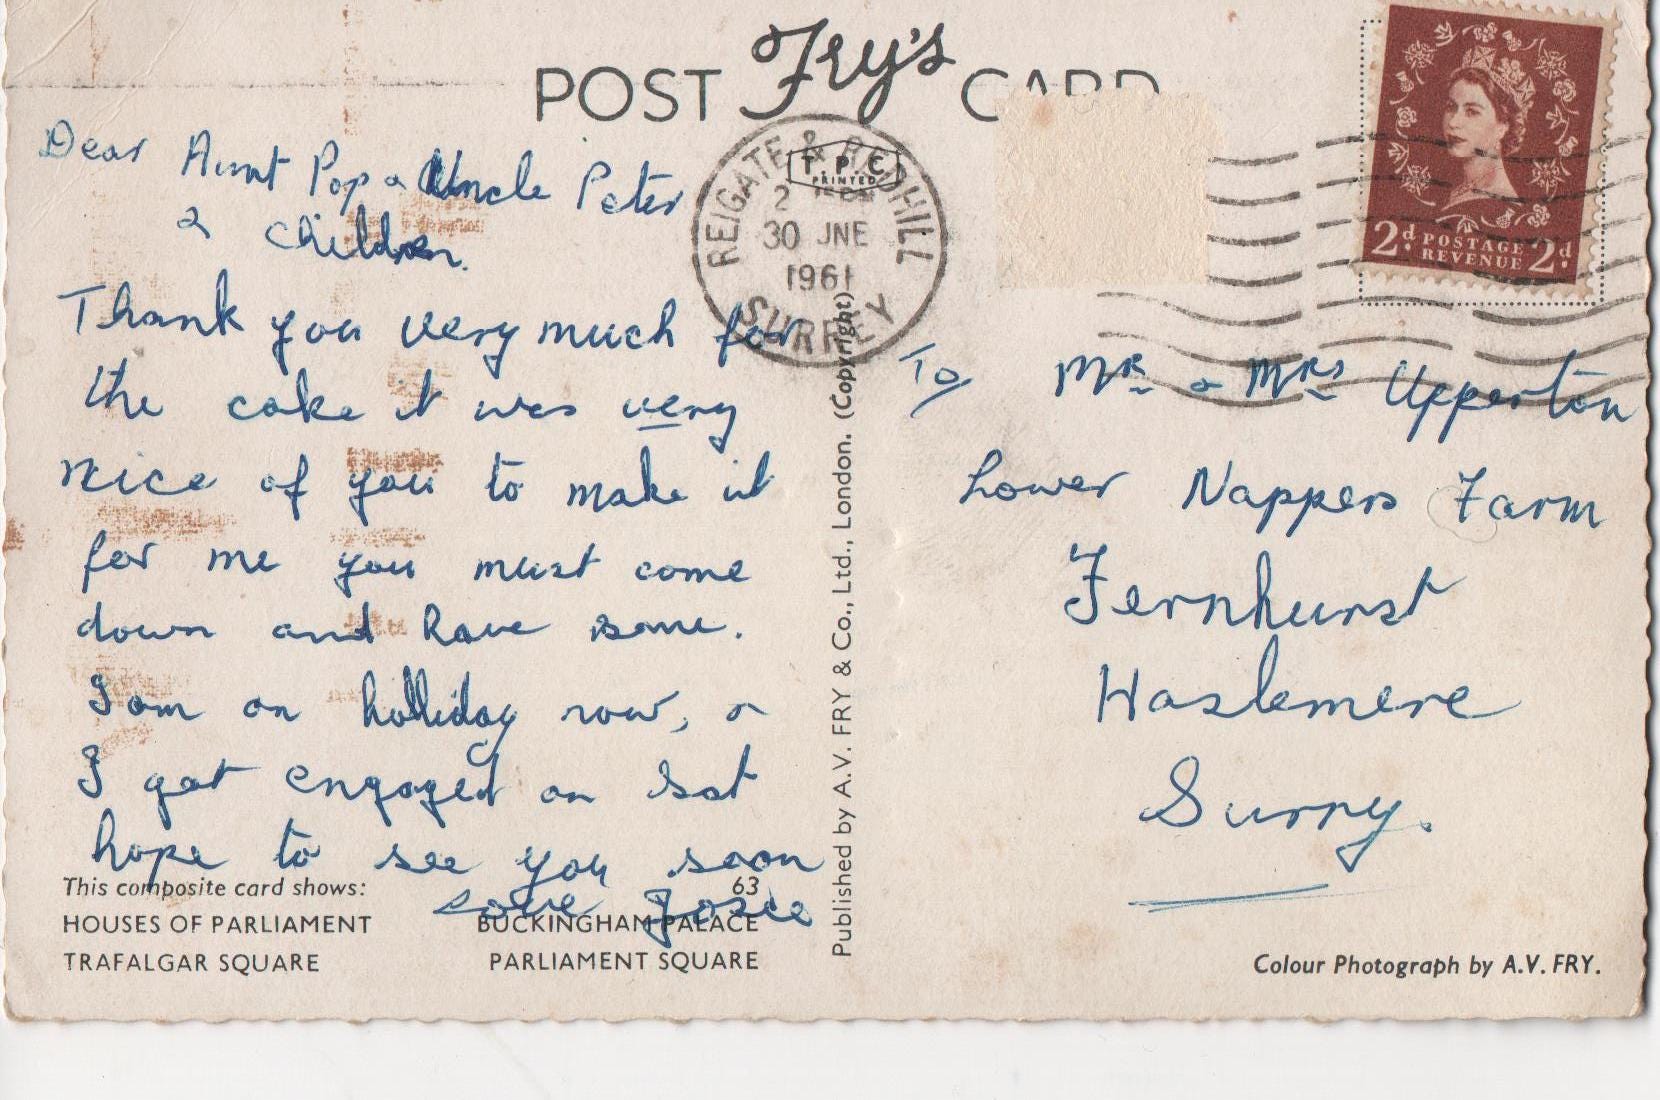 POST Fry's CARD
Dear Aunt Pop & Uncle Peter
& children.
Thank you very much for
the cake it was very
nice of you to make it
for me you must come
down and have some.
I am on holliday now, &
I got engaged on Sat
hope to see you soon
love Josie
This composite card shows: 63
HOUSES OF PARLIAMENT BUCKINGHAM PALACE
TRAFALGAR SQUARE PARLIAMENT SQUARE
REIGATE & REDHILL
T.P.C
PRINTED
30 JNE
1961
SURREY
Published by A.V. FRY & Co., Ltd., London. (Copyright)
2d. POSTAGE REVENUE 2d.
To Mr & Mrs Upperton
Lower Nappers Farm
Fernhurst
Haslemere
Surry.
Colour Photograph by A.V. FRY.